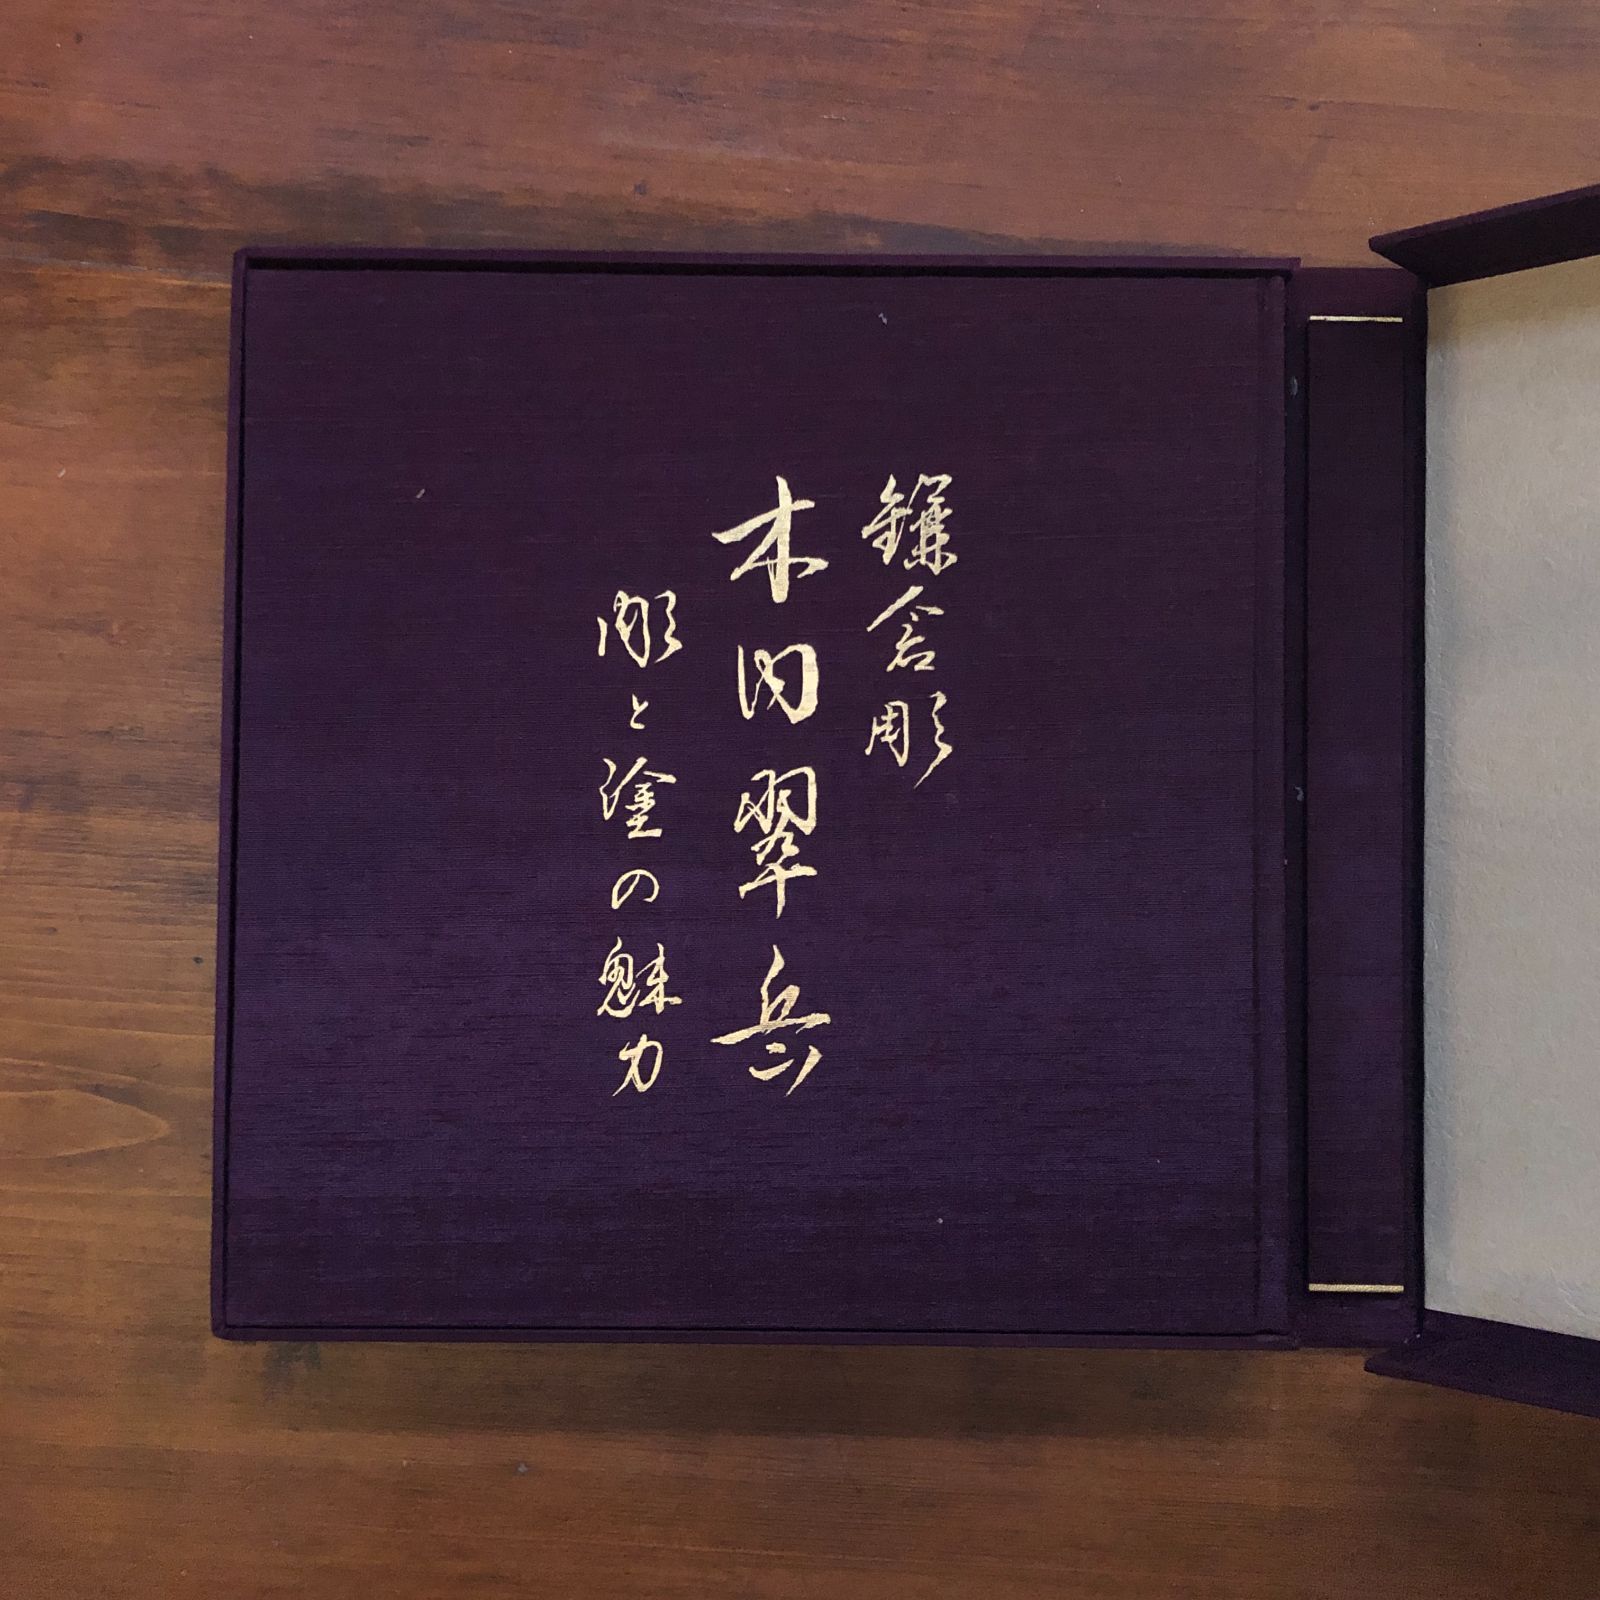 鎌倉彫
木内翠岳
彫と塗の魅力